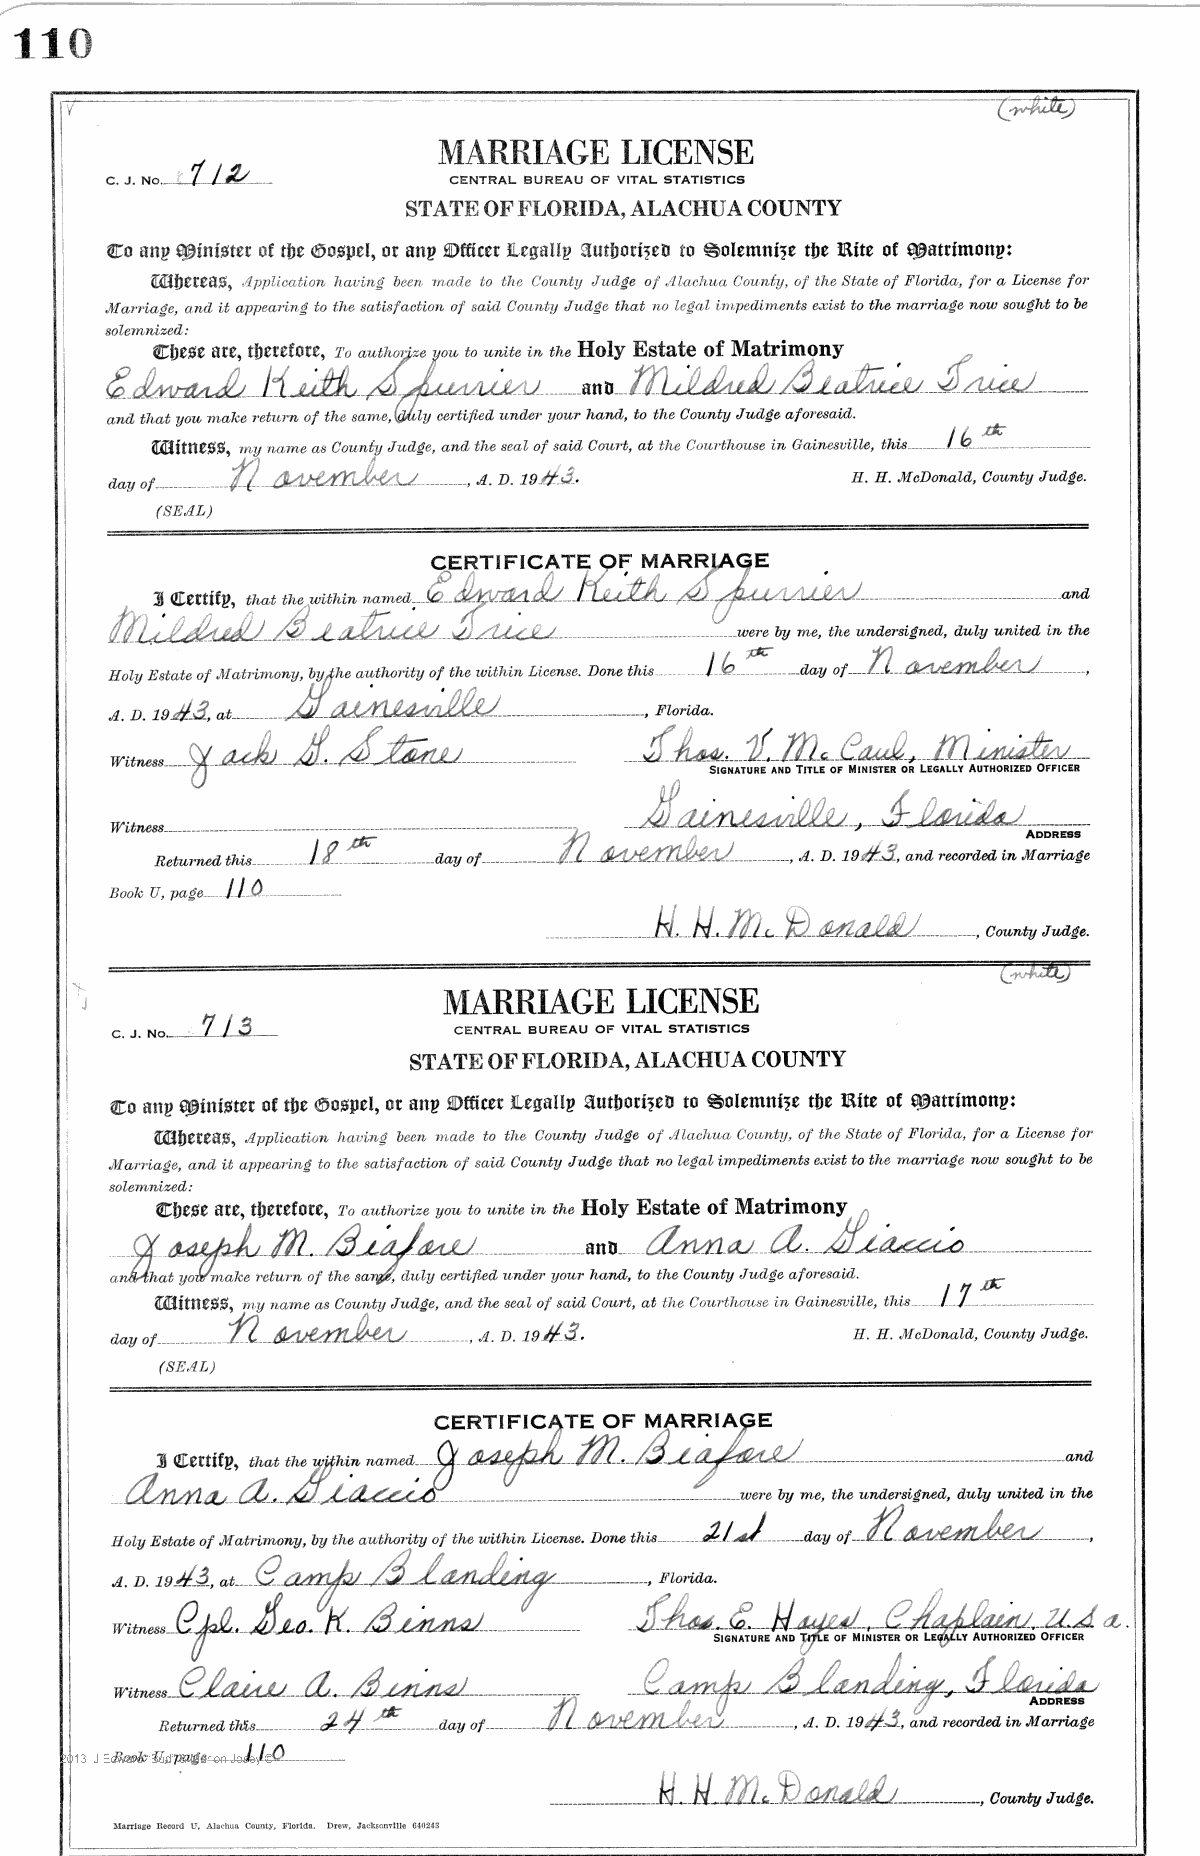 110
(white)
MARRIAGE LICENSE
C. J. No. 712
CENTRAL BUREAU OF VITAL STATISTICS
STATE OF FLORIDA, ALACHUA COUNTY
To any Minister of the Gospel, or any Officer Legally Authorized to Solemnize the Rite of Matrimony:
Whereas, Application having been made to the County Judge of Alachua County, of the State of Florida, for a License for
Marriage, and it appearing to the satisfaction of said County Judge that no legal impediments exist to the marriage now sought to be
solemnized:
These are, therefore, To authorize you to unite in the Holy Estate of Matrimony
Edward Keith Spurrier and Mildred Beatrice Trice
and that you make return of the same, duly certified under your hand, to the County Judge aforesaid.
Witness, my name as County Judge, and the seal of said Court, at the Courthouse in Gainesville, this 16th
day of November, A. D. 1943. H. H. McDonald, County Judge.
(SEAL)
CERTIFICATE OF MARRIAGE
I Certify, that the within named Edward Keith Spurrier and
Mildred Beatrice Trice were by me, the undersigned, duly united in the
Holy Estate of Matrimony, by the authority of the within License. Done this 16th day of November,
A. D. 1943, at Gainesville, Florida.
Witness Jack G. Stone Thos. V. McCaul, Minister
SIGNATURE AND TITLE OF MINISTER OR LEGALLY AUTHORIZED OFFICER
Gainesville, Florida
Witness
ADDRESS
Returned this 18th day of November, A. D. 1943, and recorded in Marriage
Book U, page 110
H. H. McDonald, County Judge.
(white)
MARRIAGE LICENSE
C. J. No. 713
CENTRAL BUREAU OF VITAL STATISTICS
STATE OF FLORIDA, ALACHUA COUNTY
To any Minister of the Gospel, or any Officer Legally Authorized to Solemnize the Rite of Matrimony:
Whereas, Application having been made to the County Judge of Alachua County, of the State of Florida, for a License for
Marriage, and it appearing to the satisfaction of said County Judge that no legal impediments exist to the marriage now sought to be
solemnized:
These are, therefore, To authorize you to unite in the Holy Estate of Matrimony
Joseph M. Biafore and Anna A. Giaccio
and that you make return of the same, duly certified under your hand, to the County Judge aforesaid.
Witness, my name as County Judge, and the seal of said Court, at the Courthouse in Gainesville, this 17th
day of November, A. D. 1943. H. H. McDonald, County Judge.
(SEAL)
CERTIFICATE OF MARRIAGE
I Certify, that the within named Joseph M. Biafore and
Anna A. Giaccio were by me, the undersigned, duly united in the
Holy Estate of Matrimony, by the authority of the within License. Done this 21st day of November,
A. D. 1943, at Camp Blanding, Florida.
Witness Cpl. Geo. K. Binns Thos. E. Hayes, Chaplain, U.S.a.
SIGNATURE AND TITLE OF MINISTER OR LEGALLY AUTHORIZED OFFICER
Witness Claire A. Binns Camp Blanding, Florida
ADDRESS
Returned this 24th day of November, A. D. 1943, and recorded in Marriage
Book U, page 110
H. H. McDonald, County Judge.
Marriage Record U, Alachua County, Florida. Drew, Jacksonville 640243